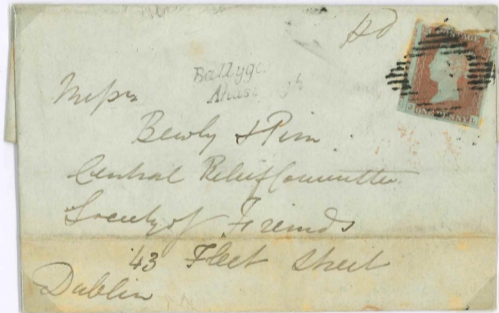 Messrs
Bewly & Pim
Central Relief Committee
Society of Friends
43 Fleet Street
Dublin